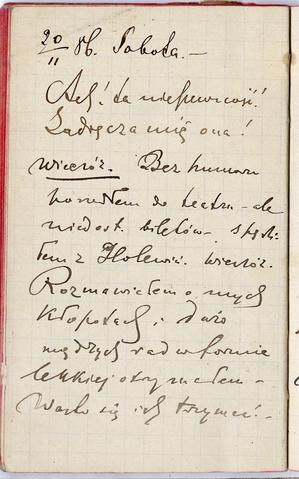 20/11 86. Sobota. —
Ach! ta niepewność!
Zadręcza mię ona!
Wieczór. Bez humoru
poszedłem do teatru – ale
niedost. biletów – spędzi-
łem z Holewiń. wieczór.
Rozmawiałem o mych
kłopotach i dużo
mądrych rad w formie
lekkiej otrzymałem –
Warto się ich trzymać. –